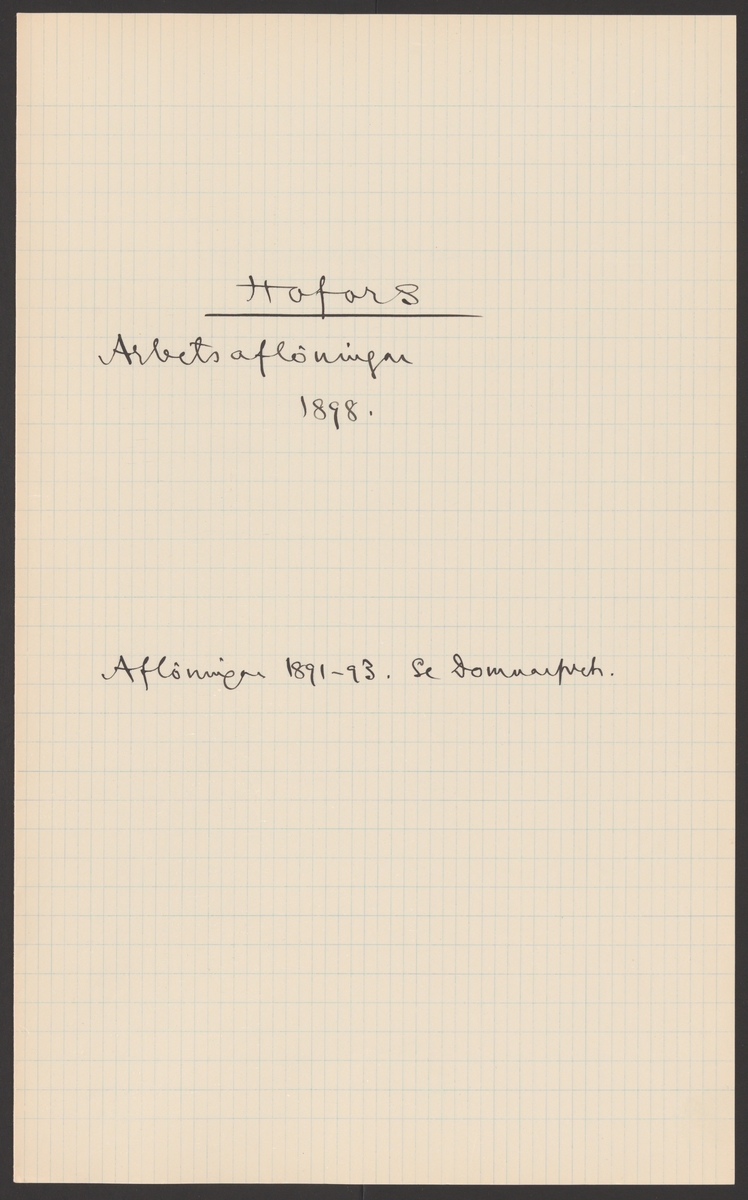 Hofors
Arbetsaflöningar
1898.
Aflöningar 1891-93. Se Domnarfvet.